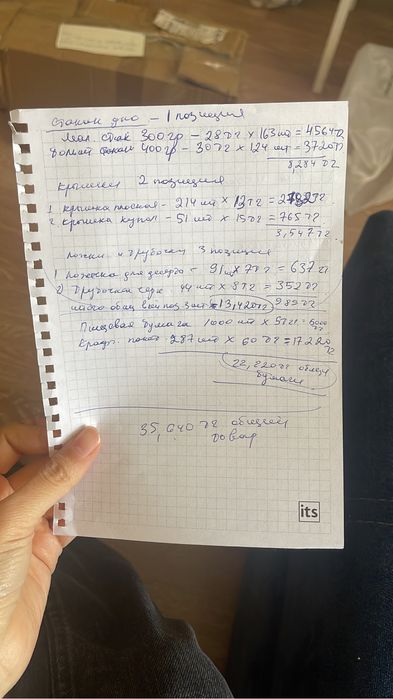 Стакан дно – 1 позиция
Мал. стак 300гр – 28тг × 163шт = 4564тг
Больш стакан 400гр – 30тг × 124 шт = 3720тг
8,284 тг
Крышечки 2 позиция
1 Крышка плоская – 214 шт × 13тг = 2782тг
2 Крышка купол – 51 шт × 15тг = 765тг
3,547тг
Ложки и трубочки 3 позиция
1 Ложечка для десерта – 91шт × 7тг = 637тг
2 Трубочки 44шт × 8тг = 352тг
989тг
итого общ 3 = 13,420тг
Пищевая бумага 1000 шт × 5тг = 5000тг
Крафт. пакет 287 шт × 60тг = 17220тг
22,220тг
бумаги
35,640тг общий
товар
its